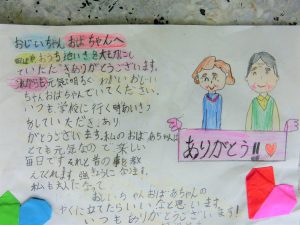 おじいちゃん おばあちゃんへ
いていただきありがとうございます。
これからも元気に明るく かわいいおじい
ちゃんおばあちゃんでいてください。
いつも学校に行く時あいさつ
をしていただき、あり
がとうございます。私のおばあちゃんは
とても元気なので楽しい
毎日です。それと昔の事を教
えてくれます。
私も大人になって
おじいちゃんおばあちゃんの
やくに立てたらいいなと思います。
いつもありがとうございます!
ありがとう!!